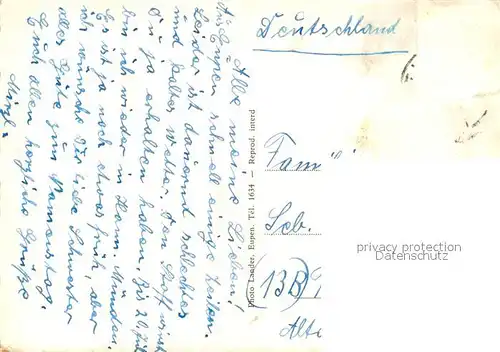 Alle meine Lieben!
Aus Eupen schnell einige Zeilen.
Leider ist dauernd schlechtes
und kaltes Wetter. Den Stoff wirst
Du ja erhalten haben. Bis 20. Juli
bin ich wieder in Hann. Münden.
Es ist ja noch etwas früh, aber
ich wünsche Dir liebe Schwester
alles Gute zum Namenstag.
Euch allen herzliche Grüße
Mizzl.
Photo Laader, Eupen. Tél. 1634 — Reprod. interd
Deutschland
Fam
Seb.
(13B)
Alt
privacy protection
Datenschutz